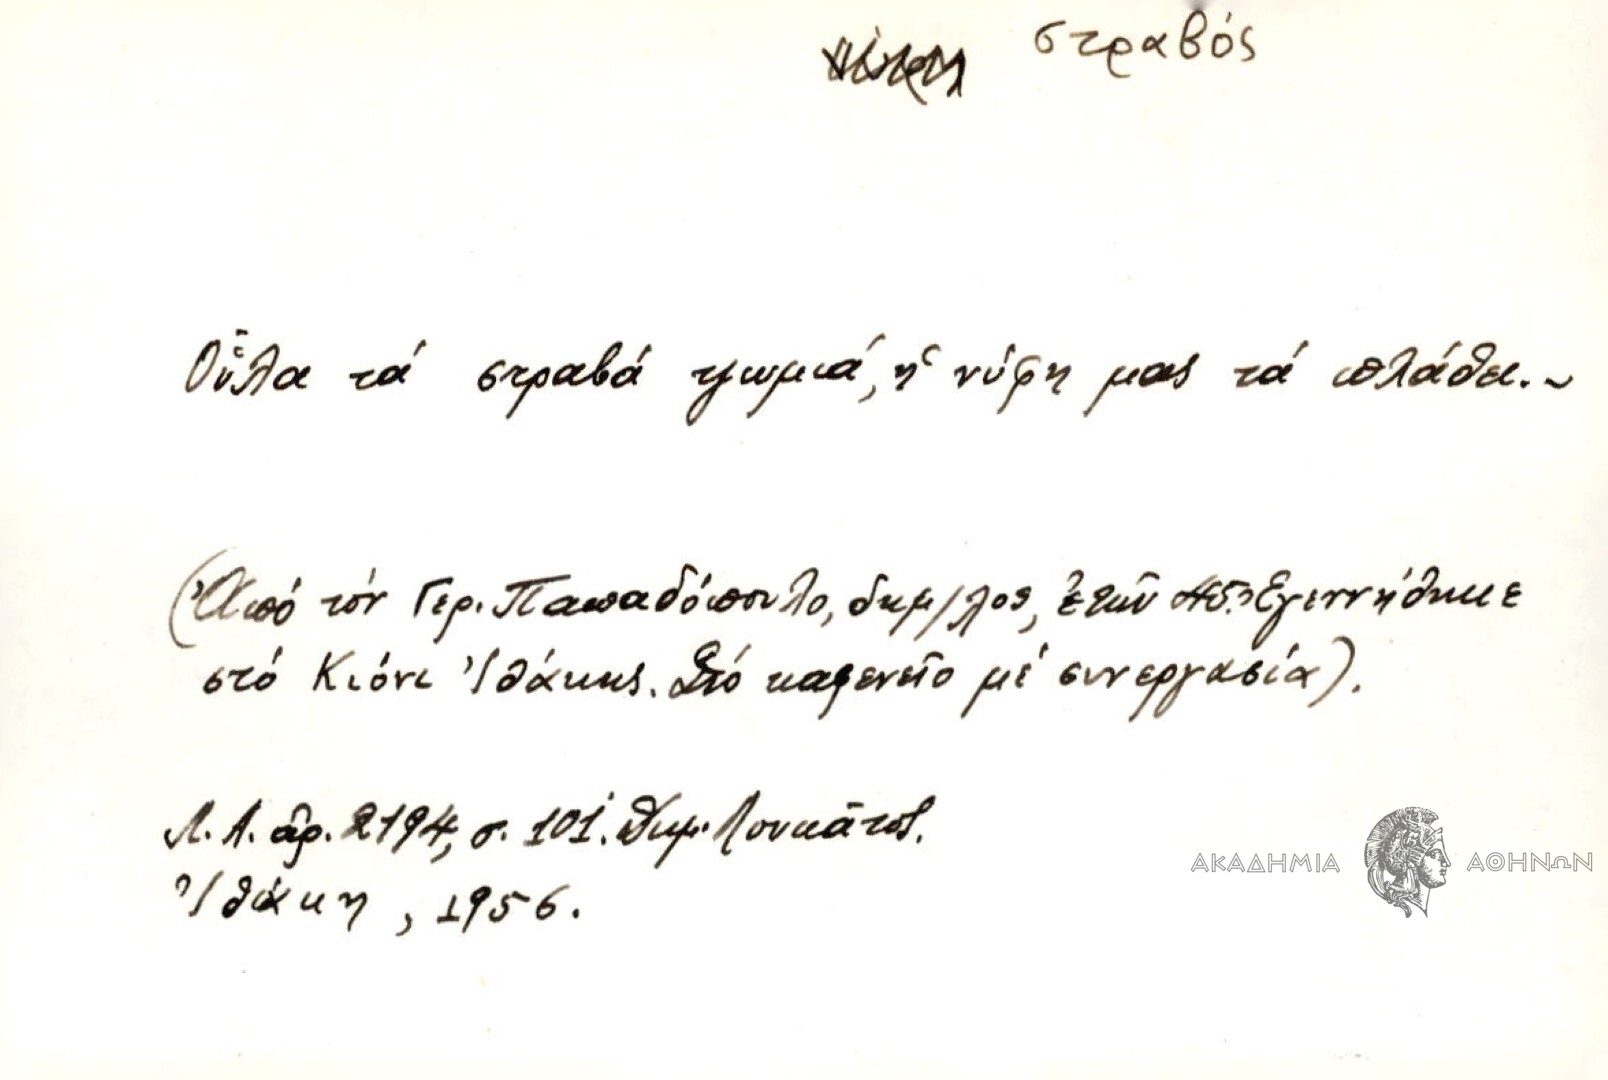 στραβός
Οὗλα τά στραβά ψωμιά, ἡ νύφη μας τά πλάθει.~
(Ἀπό τόν Γερ. Παπαδόπουλο, δημ/λος, ἐτῶν Ἐγεννήθηκε
στό Κιόνι Ἰθάκης. Στό καφενεῖο μέ συνεργασία).
Λ.Α. ἀρ. 2194, σ. 101. Δημ. Λουκᾶτος.
Ἰθάκη, 1956.
ΑΚΑΔΗΜΙΑ ΑΘΗΝΩΝ